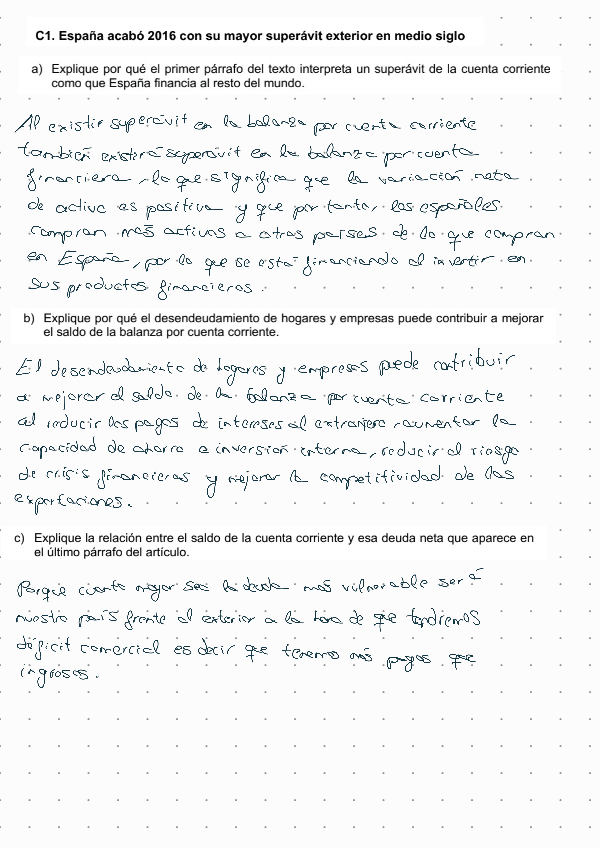 C1. España acabó 2016 con su mayor superávit exterior en medio siglo
a) Explique por qué el primer párrafo del texto interpreta un superávit de la cuenta corriente
como que España financia al resto del mundo.
Al existir superávit en la balanza por cuenta corriente
también existirá superávit en la balanza por cuenta
financiera, lo que significa que la variación neta
de activo es positiva y que por tanto, los españoles
compran más activos a otros países de lo que compran
en España, por lo que se está financiando al invertir en
sus productos financieros.
b) Explique por qué el desendeudamiento de hogares y empresas puede contribuir a mejorar
el saldo de la balanza por cuenta corriente.
El desendeudamiento de hogares y empresas puede contribuir
a mejorar el saldo de la balanza por cuenta corriente
al reducir los pagos de intereses al extranjero, aumentar la
capacidad de ahorro e inversión interna, reducir el riesgo
de crisis financieras y mejorar la competitividad de las
exportaciones.
c) Explique la relación entre el saldo de la cuenta corriente y esa deuda neta que aparece en
el último párrafo del artículo.
Porque cuanto mayor sea la deuda más vulnerable será
nuestro país frente al exterior a la hora de que tendremos
déficit comercial es decir que tenemos más pagos que
ingresos.